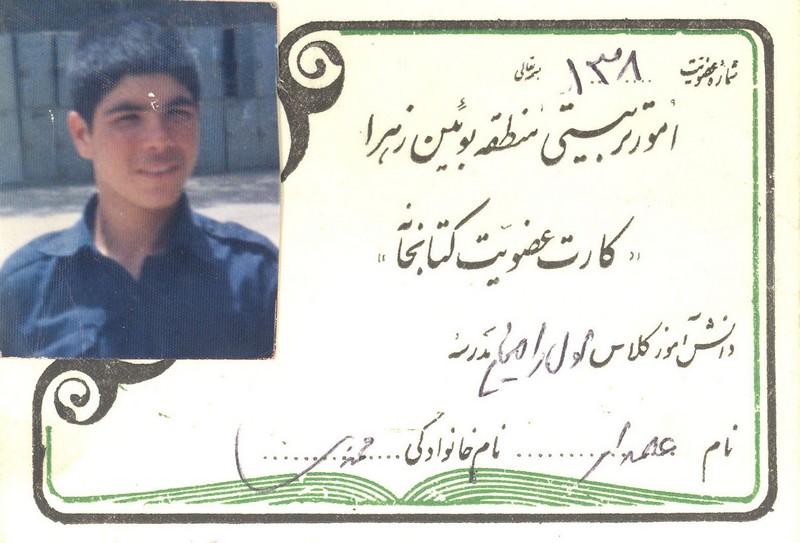 شماره عضویت ۱۳۸ بسمه تعالی
امور تربیتی منطقه بوئین زهرا
« کارت عضویت کتابخانه »
دانش آموز کلاس اول مدرسه
نام نام خانوادگی محمدی